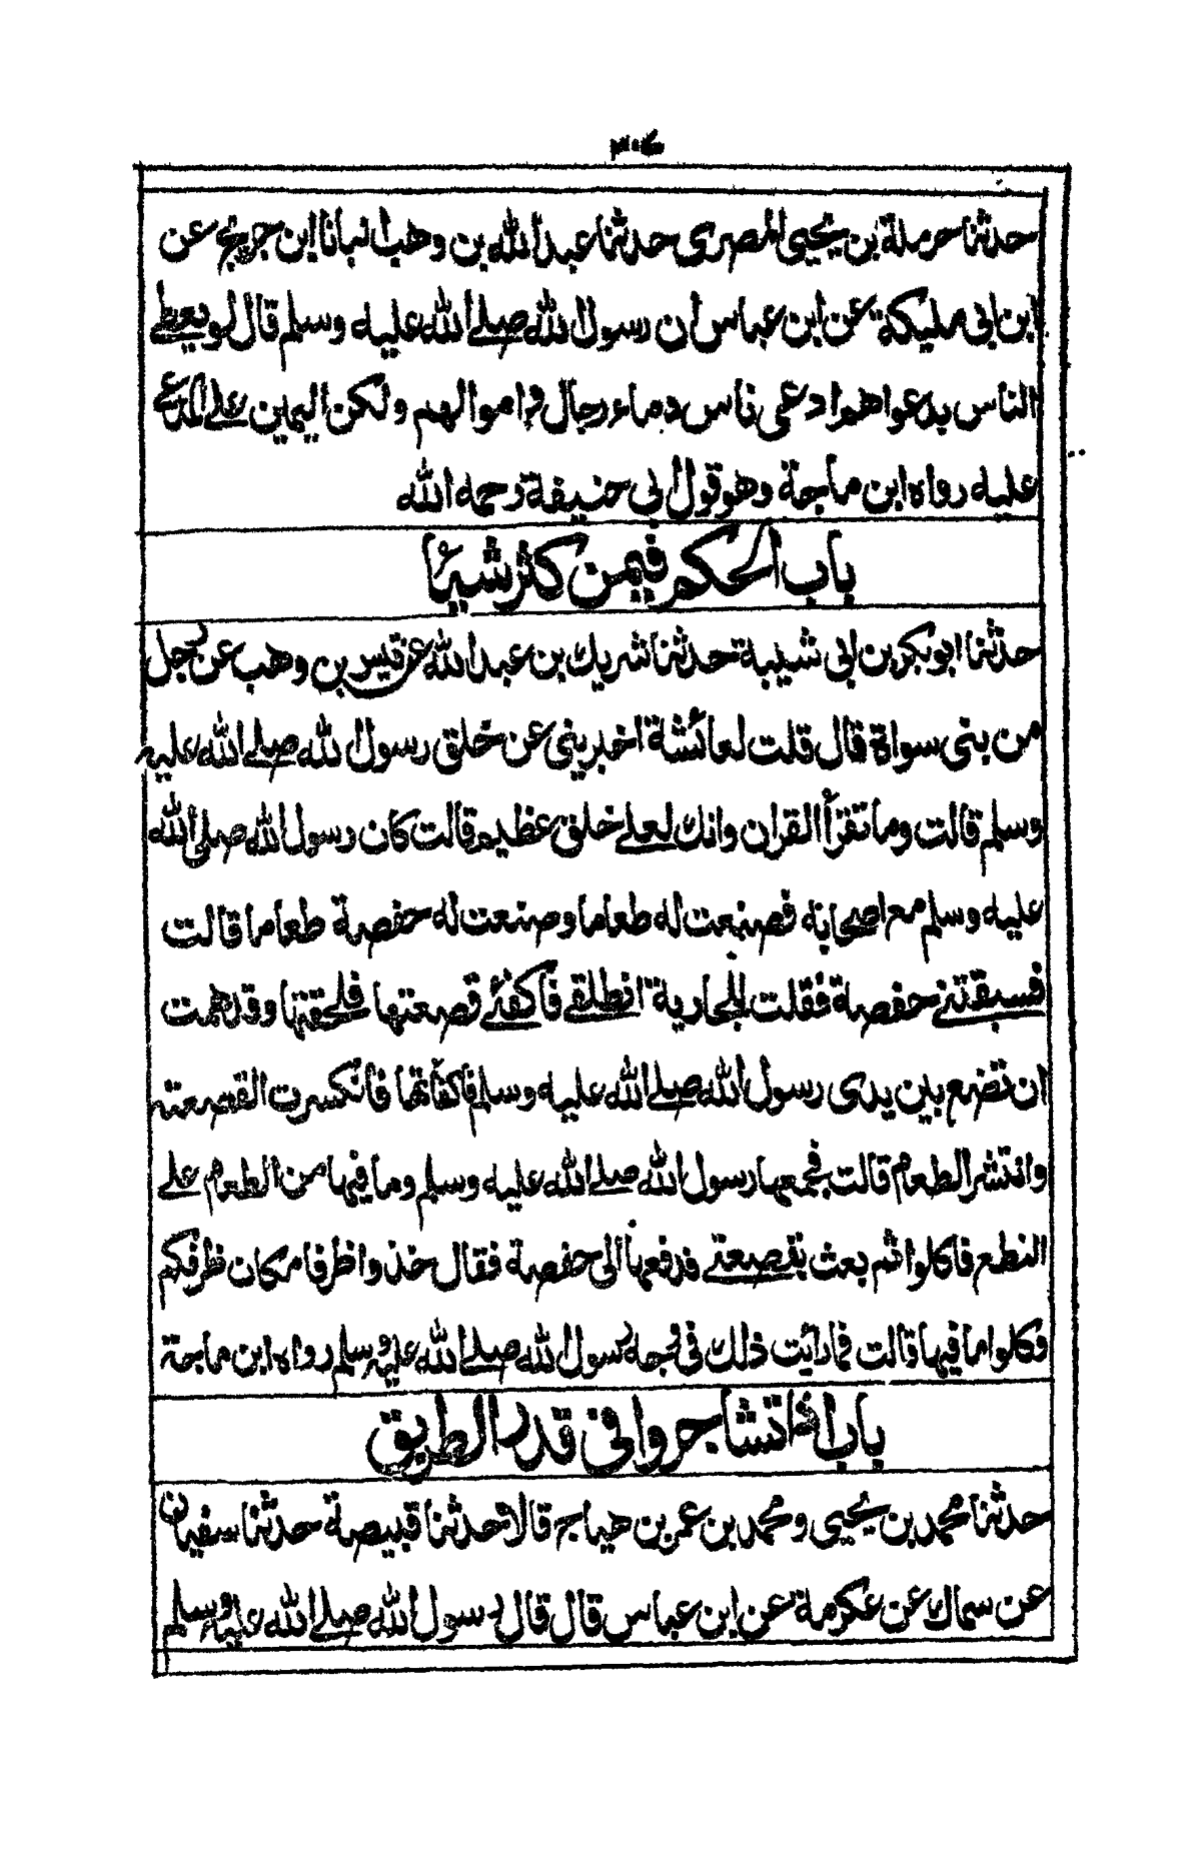 ٣٠٤
حدثنا حرملة بن يحيى المصرى حدثنا عبد الله بن وهب انبانا ابن جريج عن
ابن ابى مليكة عن ابن عباس ان رسول الله صلے الله عليه وسلم قال لو يعطے
الناس بدعواهم ادعى ناس دماء رجال و اموالهم ولكن اليمين علے المدعے
عليه رواه ابن ماجة وهو قول ابى حنيفة رحمه الله
باب الحكم فيمن كسر شيئا
حدثنا ابو بكر بن ابى شيبة حدثنا شريك بن عبد الله عن قيس بن وهب عن رجل
من بنى سواة قال قلت لعائشة اخبرينى عن خلق رسول الله صلے الله عليه
وسلم قالت وما تقرأ القران وانك لعلے خلق عظيم قالت كان رسول الله صلى الله
عليه وسلم مع اصحابه فصنعت له طعاما وصنعت له حفصة طعاما قالت
فسبقتنے حفصة فقلت للجارية انطلقے فاكفئے قصعتها فلحقتها وقد همت
ان تضع بين يدى رسول الله صلے الله عليه وسلم فاكفأتها فانكسرت القصعته
وانتشر الطعام قالت فجمعها رسول الله صلے الله عليه وسلم وما فيها من الطعام علے
النطع فاكلوا ثم بعث بقصعتے فدفعها الى حفصة فقال خذوا ظرفا مكان ظرفكم
وكلوا ما فيها قالت فما رائيت ذلك فى وجه رسول الله صلے الله عليه وسلم رواه ابن ماجة
باب اذا تشاجروا فى قدر الطريق
حدثنا محمد بن يحيى ومحمد بن عمر بن هياج قالا حدثنا قبيصة حدثنا سفيان
عن سماك عن عكرمة عن ابن عباس قال قال رسول الله صلے الله عليه وسلم